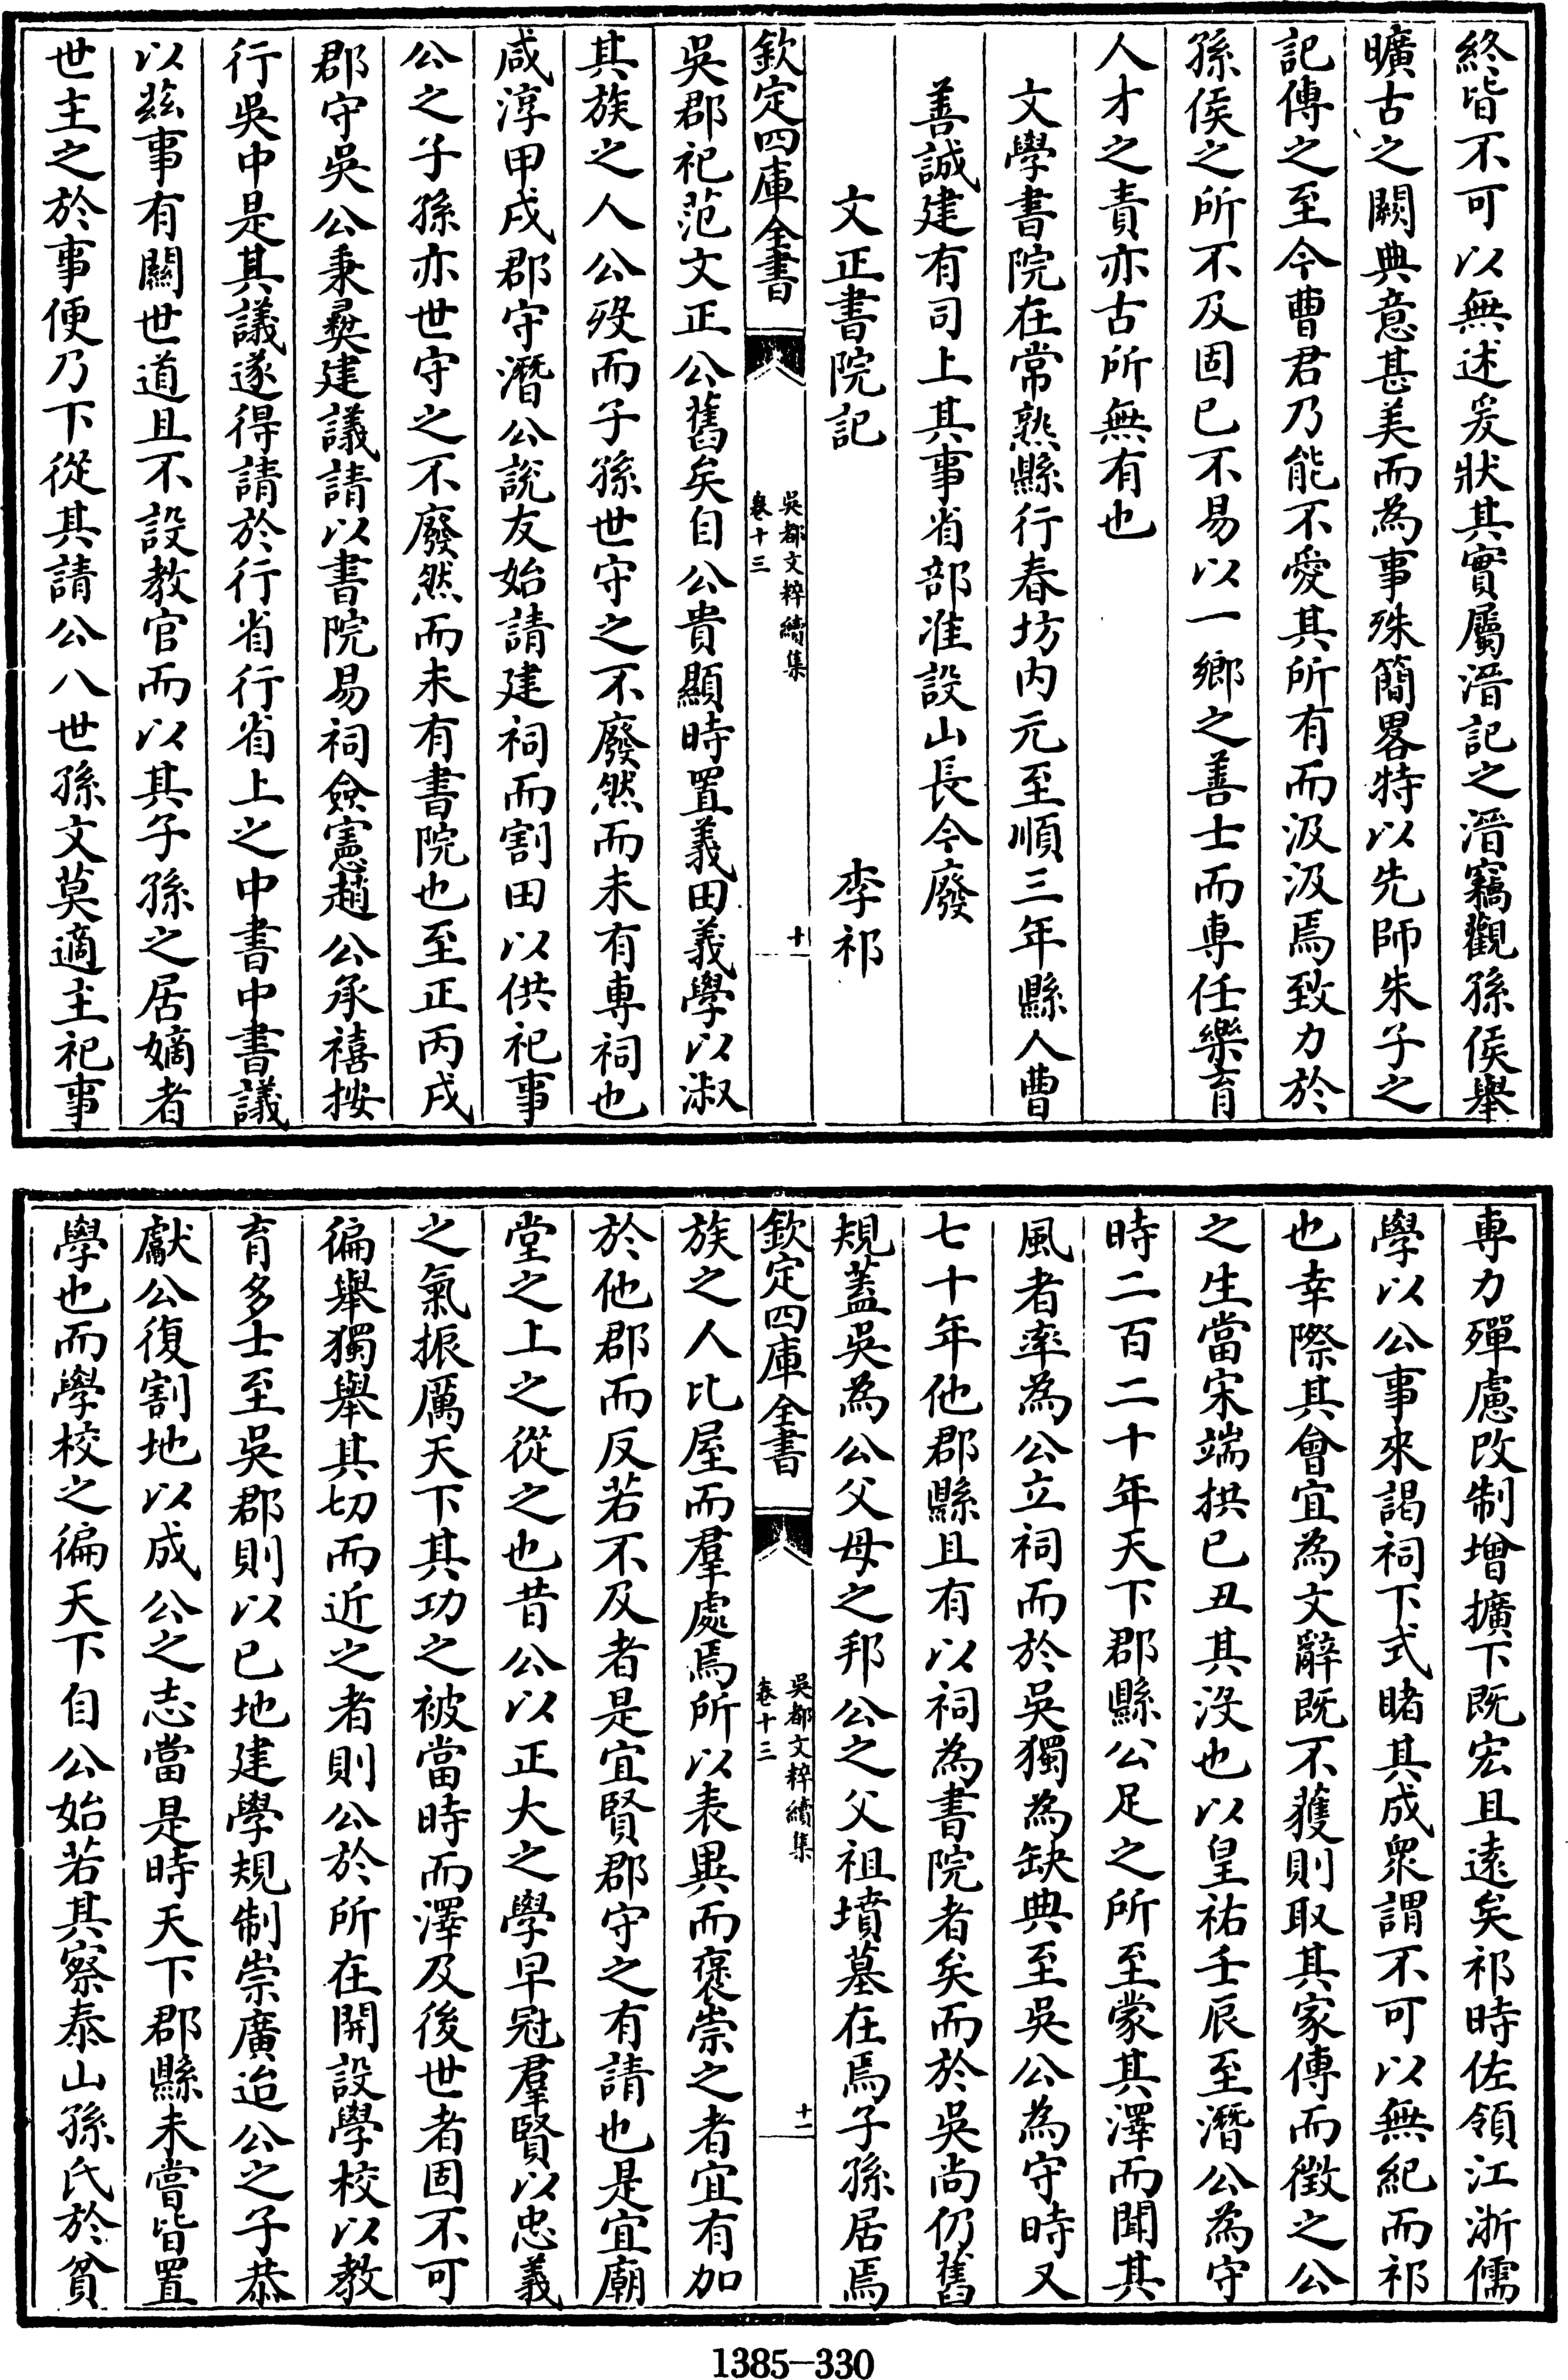 終皆不可以無述爰狀其實屬溍記之溍竊觀孫侯舉
曠古之闕典意甚美而為事殊簡畧特以先師朱子之
記傳之至今曹君乃能不愛其所有而汲汲焉致力於
孫侯之所不及固已不易以一鄉之善士而專任樂育
人才之責亦古所無有也
文學書院在常熟縣行春坊內元至順三年縣人曹
善誠建有司上其事省部准設山長今廢
文正書院記 李祁
欽定四庫全書 吳都文粹續集 卷十三 十
吳郡祀范文正公舊矣自公貴顯時置義田義學以淑
其族之人公歿而子孫世守之不廢然而未有專祠也
咸淳甲戌郡守潛公說友始請建祠而割田以供祀事
公之子孫亦世守之不廢然而未有書院也至正丙戌
郡守吳公秉彞建議請以書院易祠僉憲趙公承禧按
行吳中是其議遂得請於行省行省上之中書中書議
以兹事有關世道且不設教官而以其子孫之居嫡者
世主之於事便乃下從其請公八世孫文莫適主祀事
專力殫慮改制增擴下既宏且遠矣祁時佐領江浙儒
學以公事來謁祠下式睹其成衆謂不可以無紀而祁
也幸際其會宜為文辭既不獲則取其家傳而徵之公
之生當宋端拱己丑其沒也以皇祐壬辰至潛公為守
時二百二十年天下郡縣公足之所至蒙其澤而聞其
風者率為公立祠而於吳獨為缺典至吳公為守時又
七十年他郡縣且有以祠為書院者矣而於吳尚仍舊
規蓋吳為公父母之邦公之父祖墳墓在焉子孫居焉
欽定四庫全書 吳都文粹續集 卷十三 十一
族之人比屋而羣處焉所以表異而褒崇之者宜有加
於他郡而反若不及者是宜賢郡守之有請也是宜廟
堂之上之從之也昔公以正大之學早冠羣賢以忠義
之氣振厲天下其功之被當時而澤及後世者固不可
徧舉獨舉其切而近之者則公於所在開設學校以教
育多士至吳郡則以已地建學規制崇廣迨公之子恭
獻公復割地以成公之志當是時天下郡縣未嘗皆置
學也而學校之徧天下自公始若其察泰山孫氏於貧
1385-330